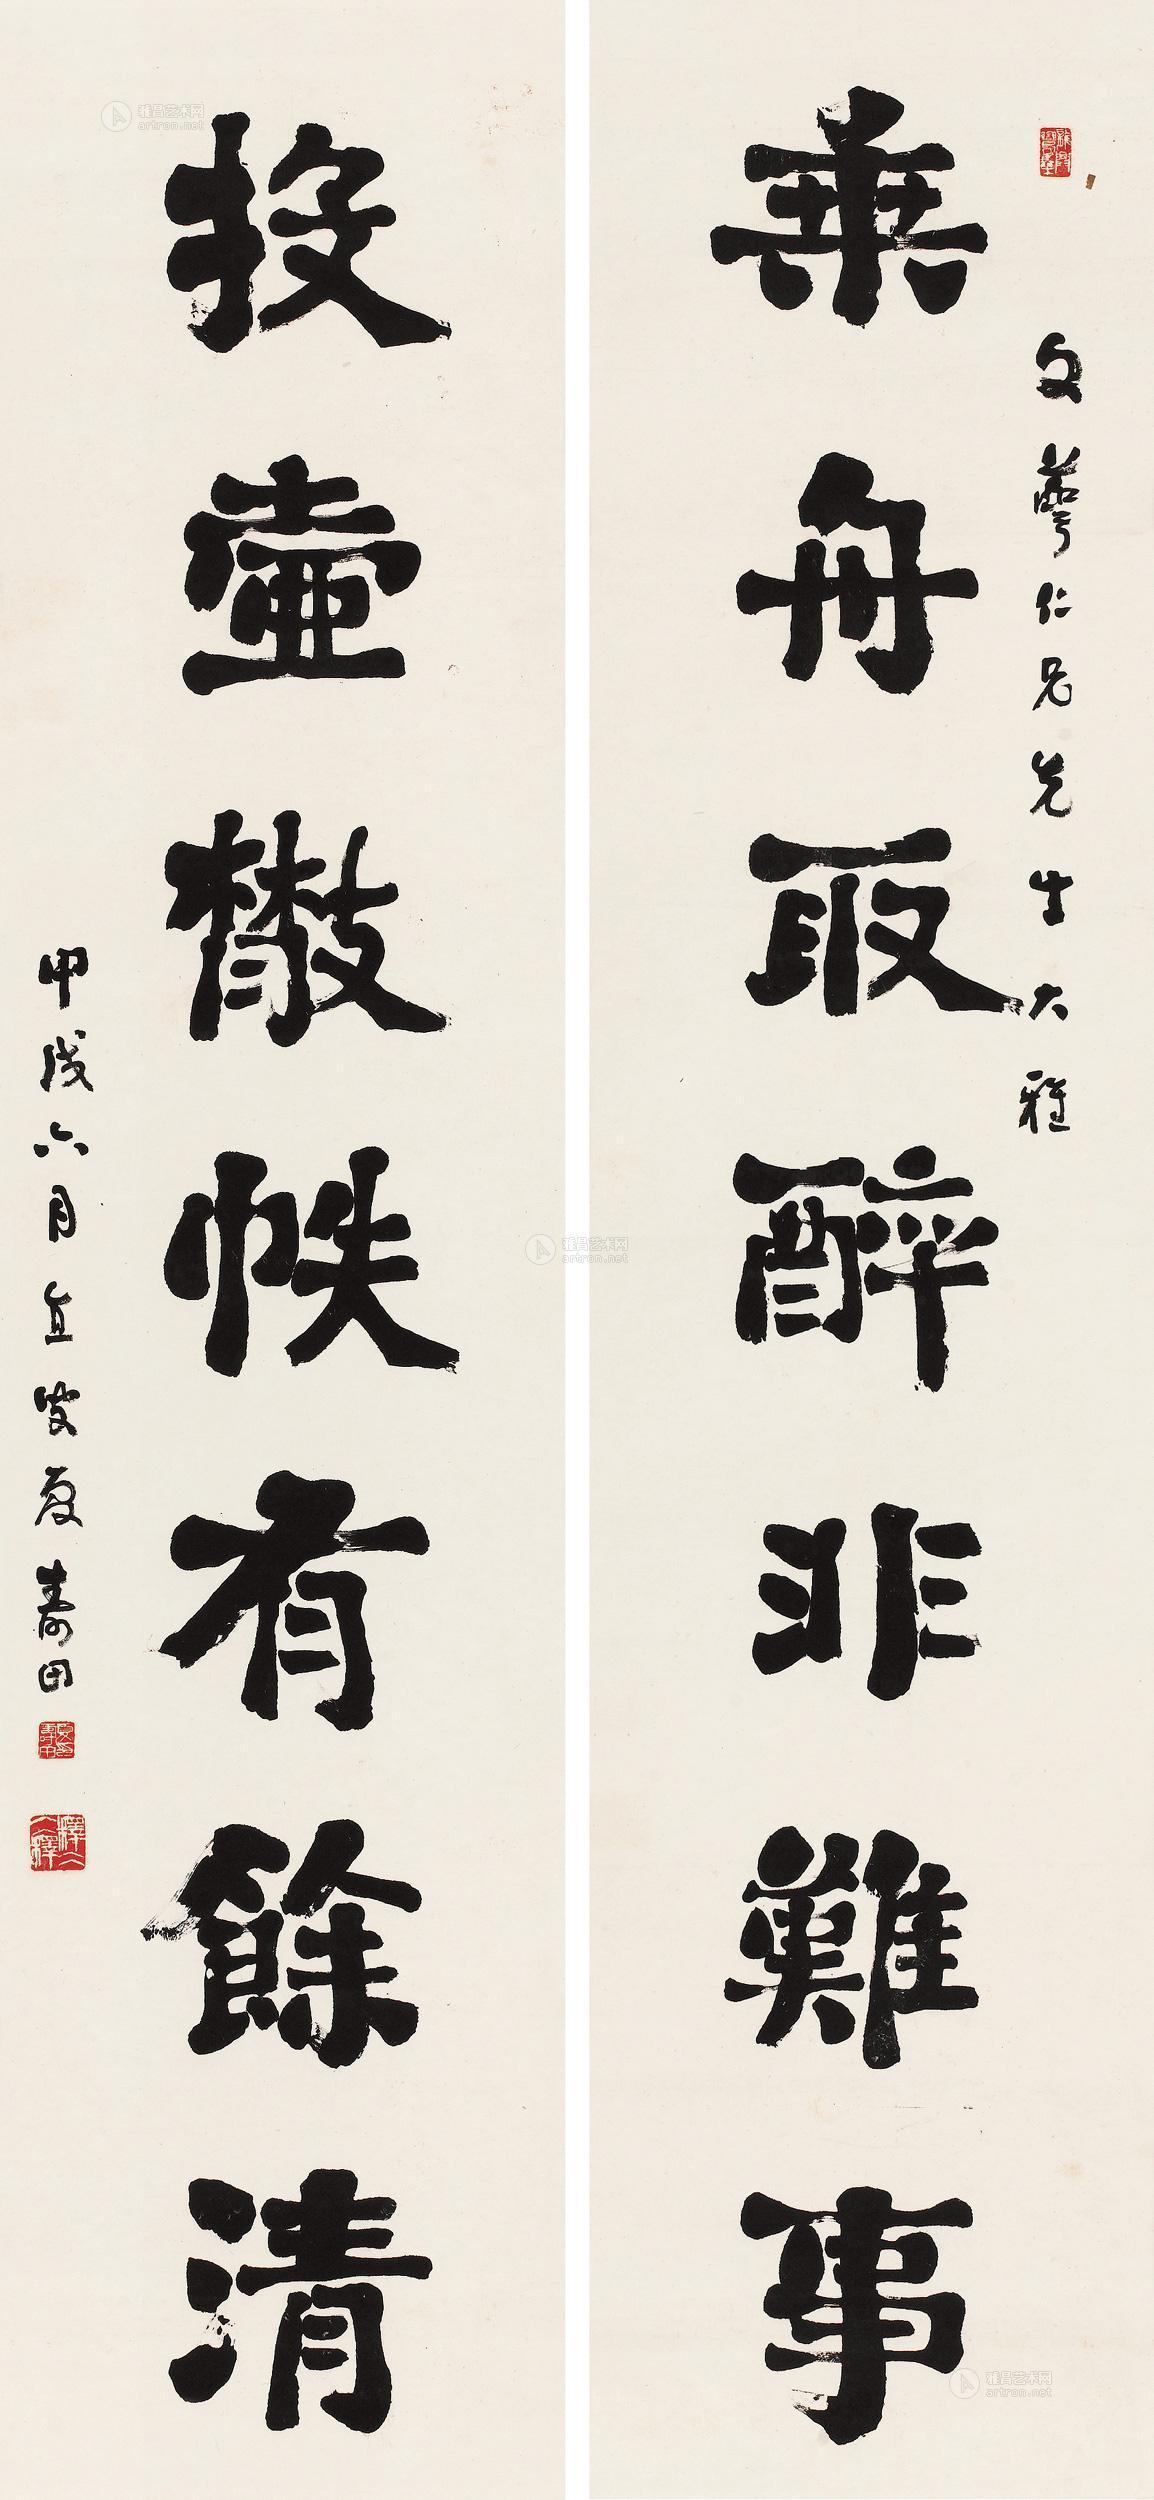 乘舟取醉非難事
文萼仁兄先生大雅
投壺散帙有餘清
甲戌六月直叟夏壽田
雅昌艺术网
artron.net
雅昌艺术网
artron.net
雅昌艺术网
artron.net